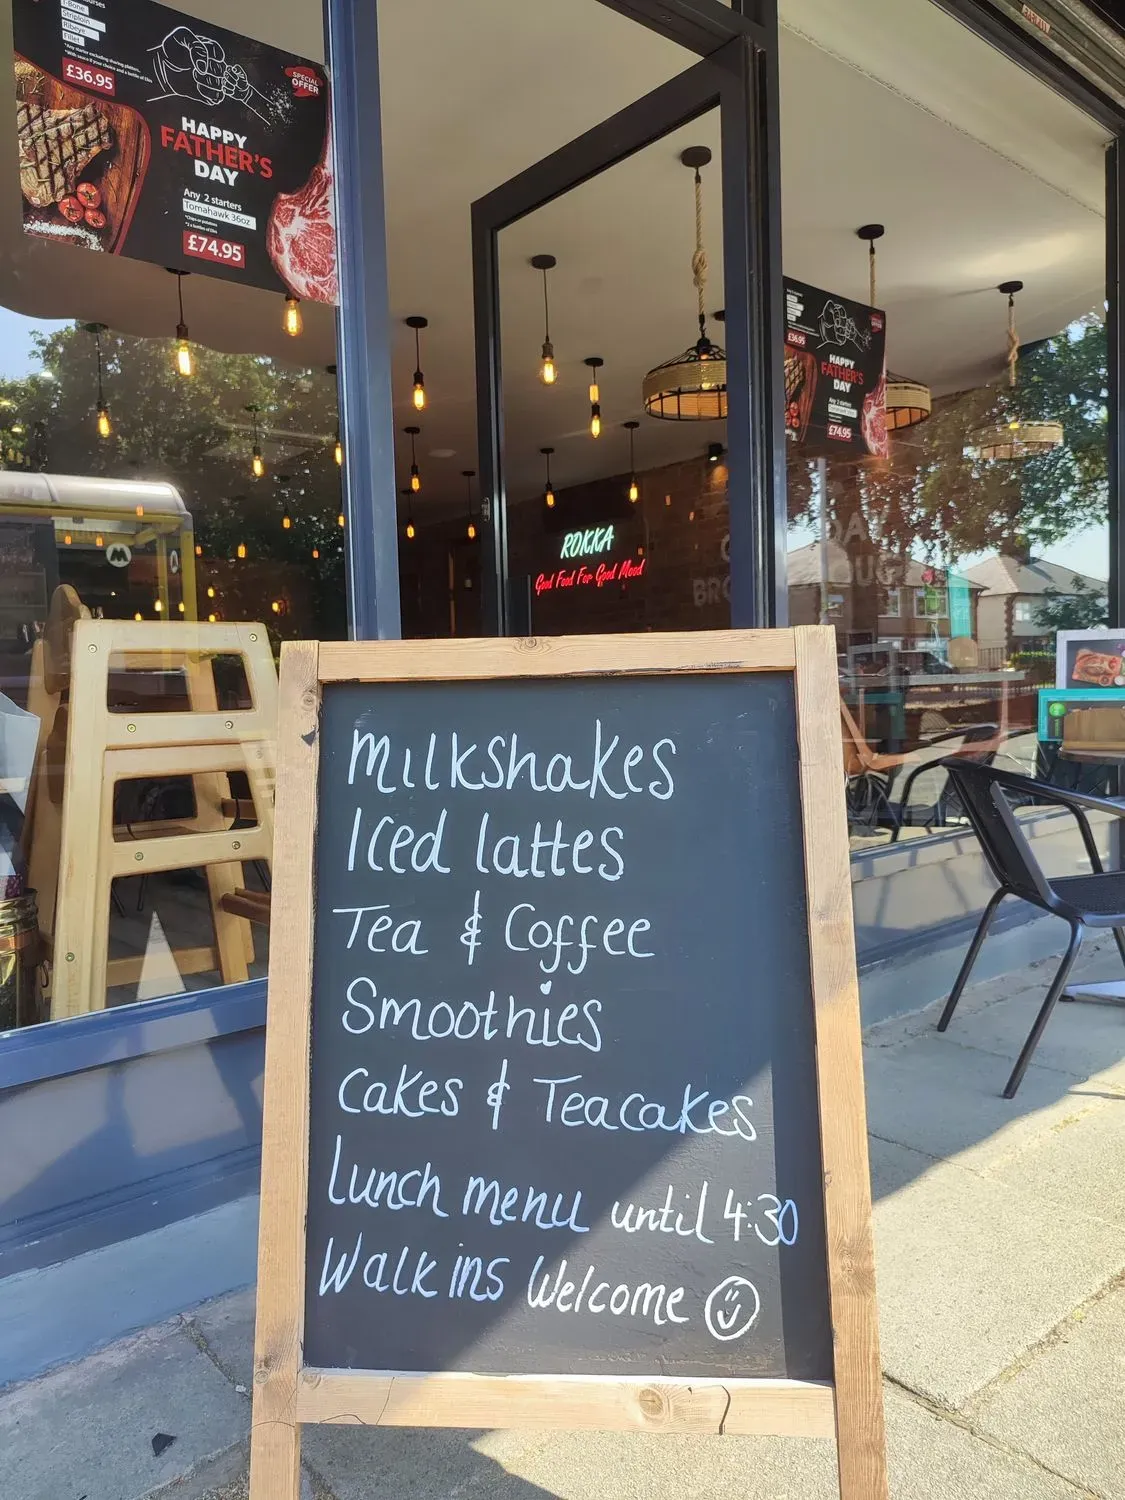 T-Bone
Striploin
Ribeye
Fillet
£36.95
SPECIAL
OFFER
HAPPY
FATHER'S
DAY
Any 2 starters
Tomahawk 36oz
£74.95
£36.95
HAPPY
FATHER'S
DAY
Any 2 starters
Tomahawk 36oz
£74.95
ROKKA
Good Food For Good Mood
Milkshakes
Iced lattes
Tea & Coffee
Smoothies
Cakes & Teacakes
Lunch menu until 4:30
Walk ins Welcome